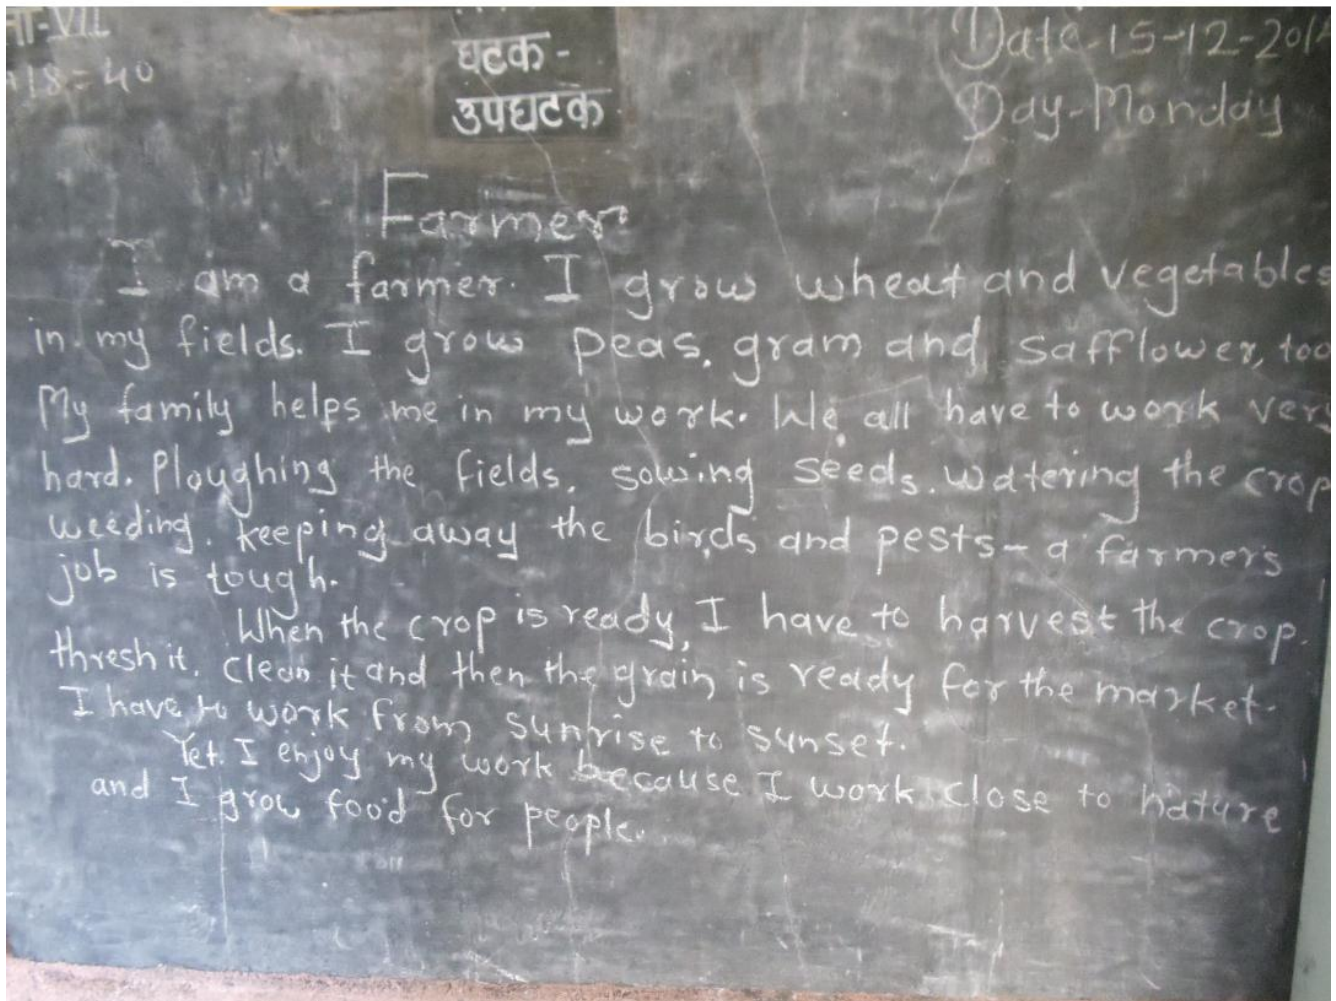 VII
18=40
घटक -
उपघटक
Date-15-12-201
Day-Monday
Farmer.
I am a farmer. I grow wheat and vegetables
in my fields. I grow peas, gram and safflower, too
My family helps me in my work. We all have to work very
hard. Ploughing the fields, sowing seeds, watering the crop
weeding, keeping away the birds and pests- a farmer's
job is tough.
When the crop is ready, I have to harvest the crop,
thresh it, clean it and then the grain is ready for the market.
I have to work from sunrise to sunset.
Yet, I enjoy my work because I work close to nature
and I grow food for people.